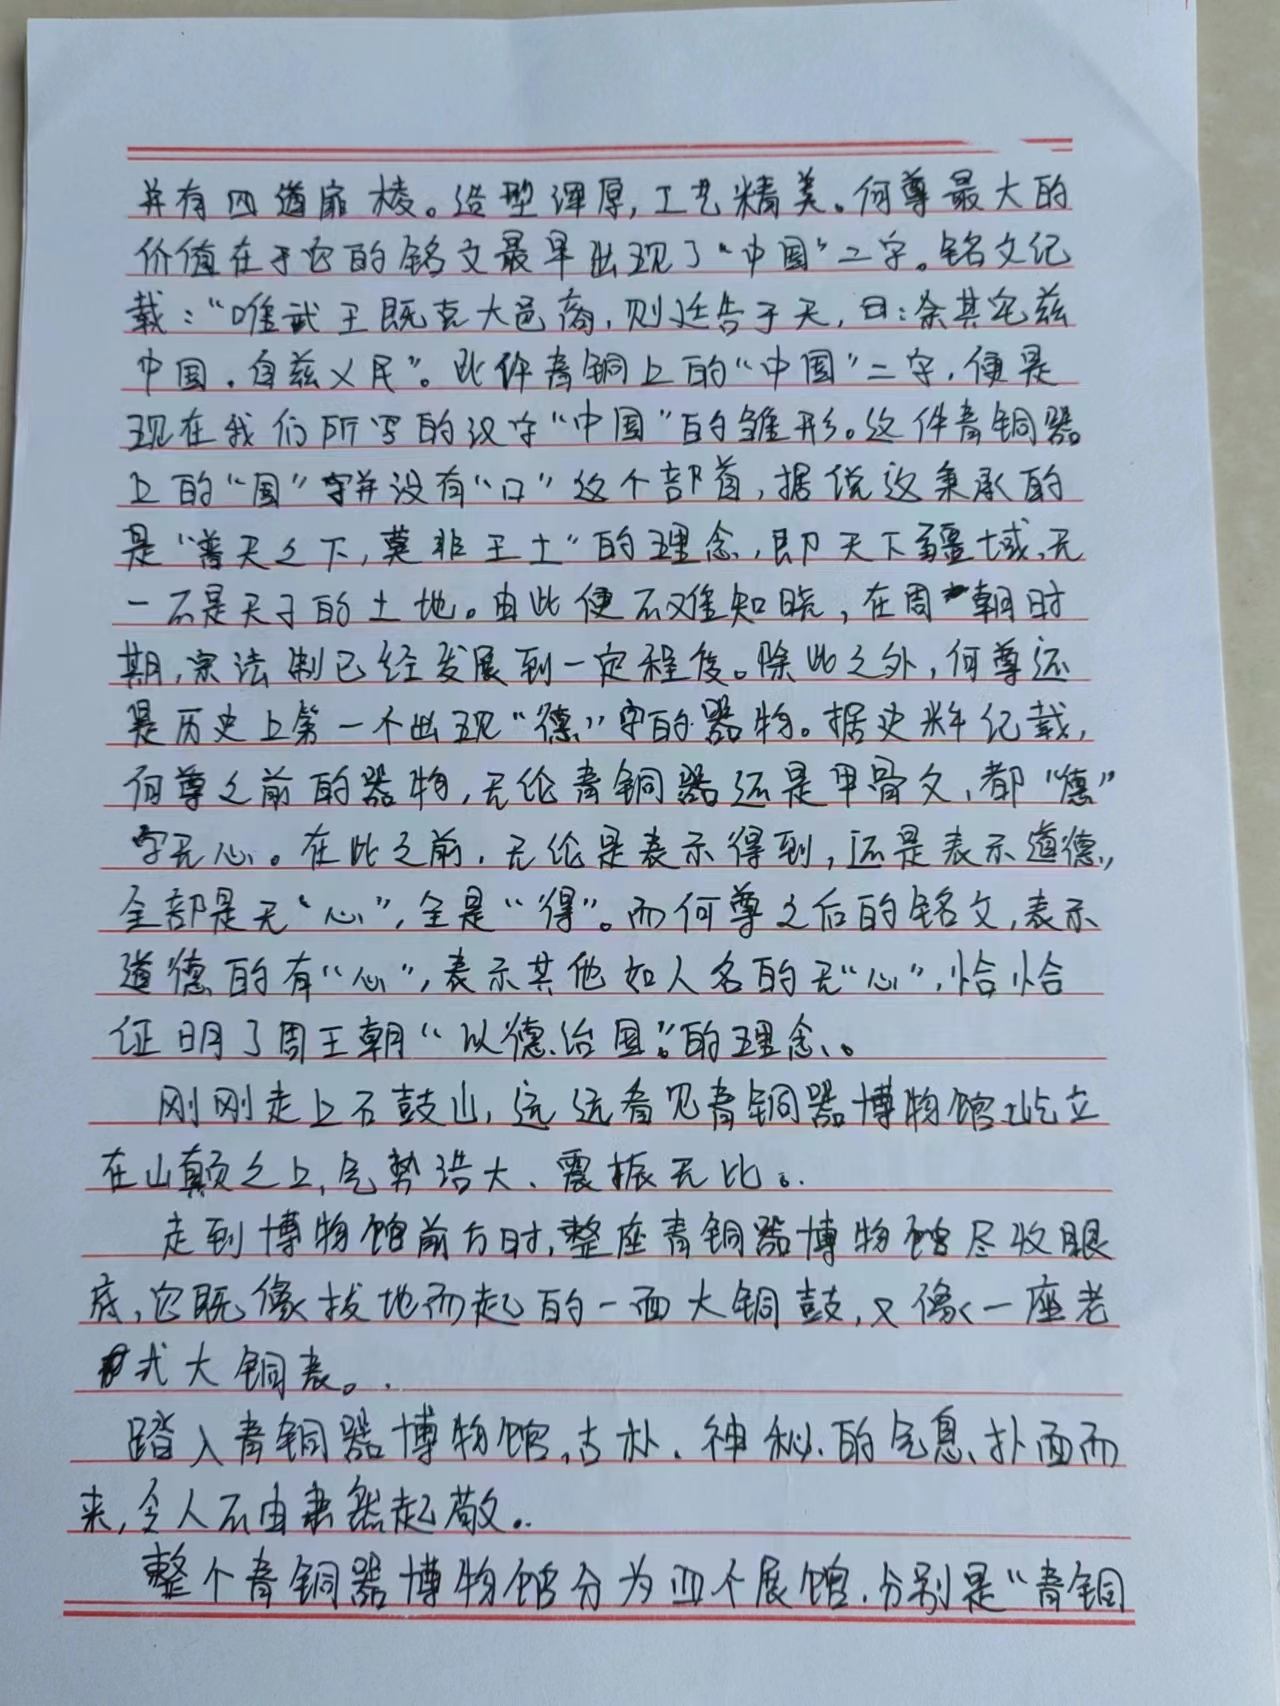 并有四道扉棱。造型浑厚,工艺精美。何尊最大的
价值在于它的铭文最早出现了“中国”二字。铭文记
载:“唯武王既克大邑商,则廷告于天,曰:余其宅兹
中国,自兹乂民”。此件青铜上的“中国”二字,便是
现在我们所写的汉字“中国”的雏形。这件青铜器
上的“国”字并没有“口”这个部首,据说这秉承的
是“普天之下,莫非王土”的理念,即天下疆域,无
一不是天子的土地。由此便不难知晓,在周朝时
期,宗法制已经发展到一定程度。除此之外,何尊还
是历史上第一个出现“德”字的器物。据史料记载,
何尊之前的器物,无论青铜器还是甲骨文,都“德”
字无心。在此之前,无论是表示得到,还是表示道德,
全部是无“心”,全是“得”。而何尊之后的铭文,表示
道德的有“心”,表示其他如人名的无“心”,恰恰
证明了周王朝“以德治国”的理念。
刚刚走上石鼓山,远远看见青铜器博物馆屹立
在山巅之上,气势浩大、震振无比。
走到博物馆前方时,整座青铜器博物馆尽收眼
底,它既像拔地而起的一面大铜鼓,又像一座老
式大铜表。
踏入青铜器博物馆,古朴、神秘的气息扑面而
来,令人不由肃然起敬。
整个青铜器博物馆分为四个展馆,分别是“青铜